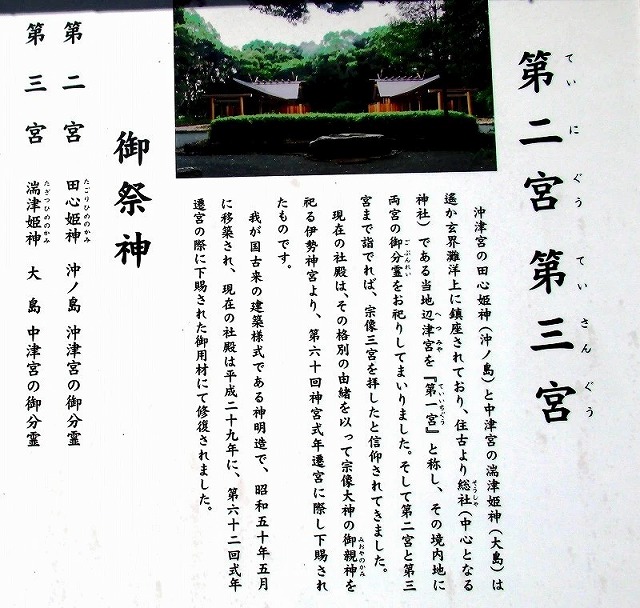 第二宮 第三宮
ていにぐう ていさんぐう
沖津宮の田心姫神（沖ノ島）と中津宮の湍津姫神（大島）は
遥か玄界灘洋上に鎮座されており、往古より総社（中心となる
そうしゃ
神社）である当地辺津宮を『第一宮』と称し、その境内地に
へつみや ていいちぐう
両宮の御分霊をお祀りしてまいりました。そして第二宮と第三
ごぶんれい
宮まで詣でれば、宗像三宮を拝したと信仰されてきました。
現在の社殿は、その格別の由緒を以って宗像大神の御親神を
みおやのかみ
祀る伊勢神宮より、第六十回神宮式年遷宮に際し下賜され
たものです。
我が国古来の建築様式である神明造で、昭和五十年五月
に移築され、現在の社殿は平成二十九年に、第六十二回式年
遷宮の際に下賜された御用材にて修復されました。
御祭神
第二宮 田心姫神 沖ノ島 沖津宮の御分霊
たごりひめのかみ
第三宮 湍津姫神 大島 中津宮の御分霊
たぎつひめのかみ